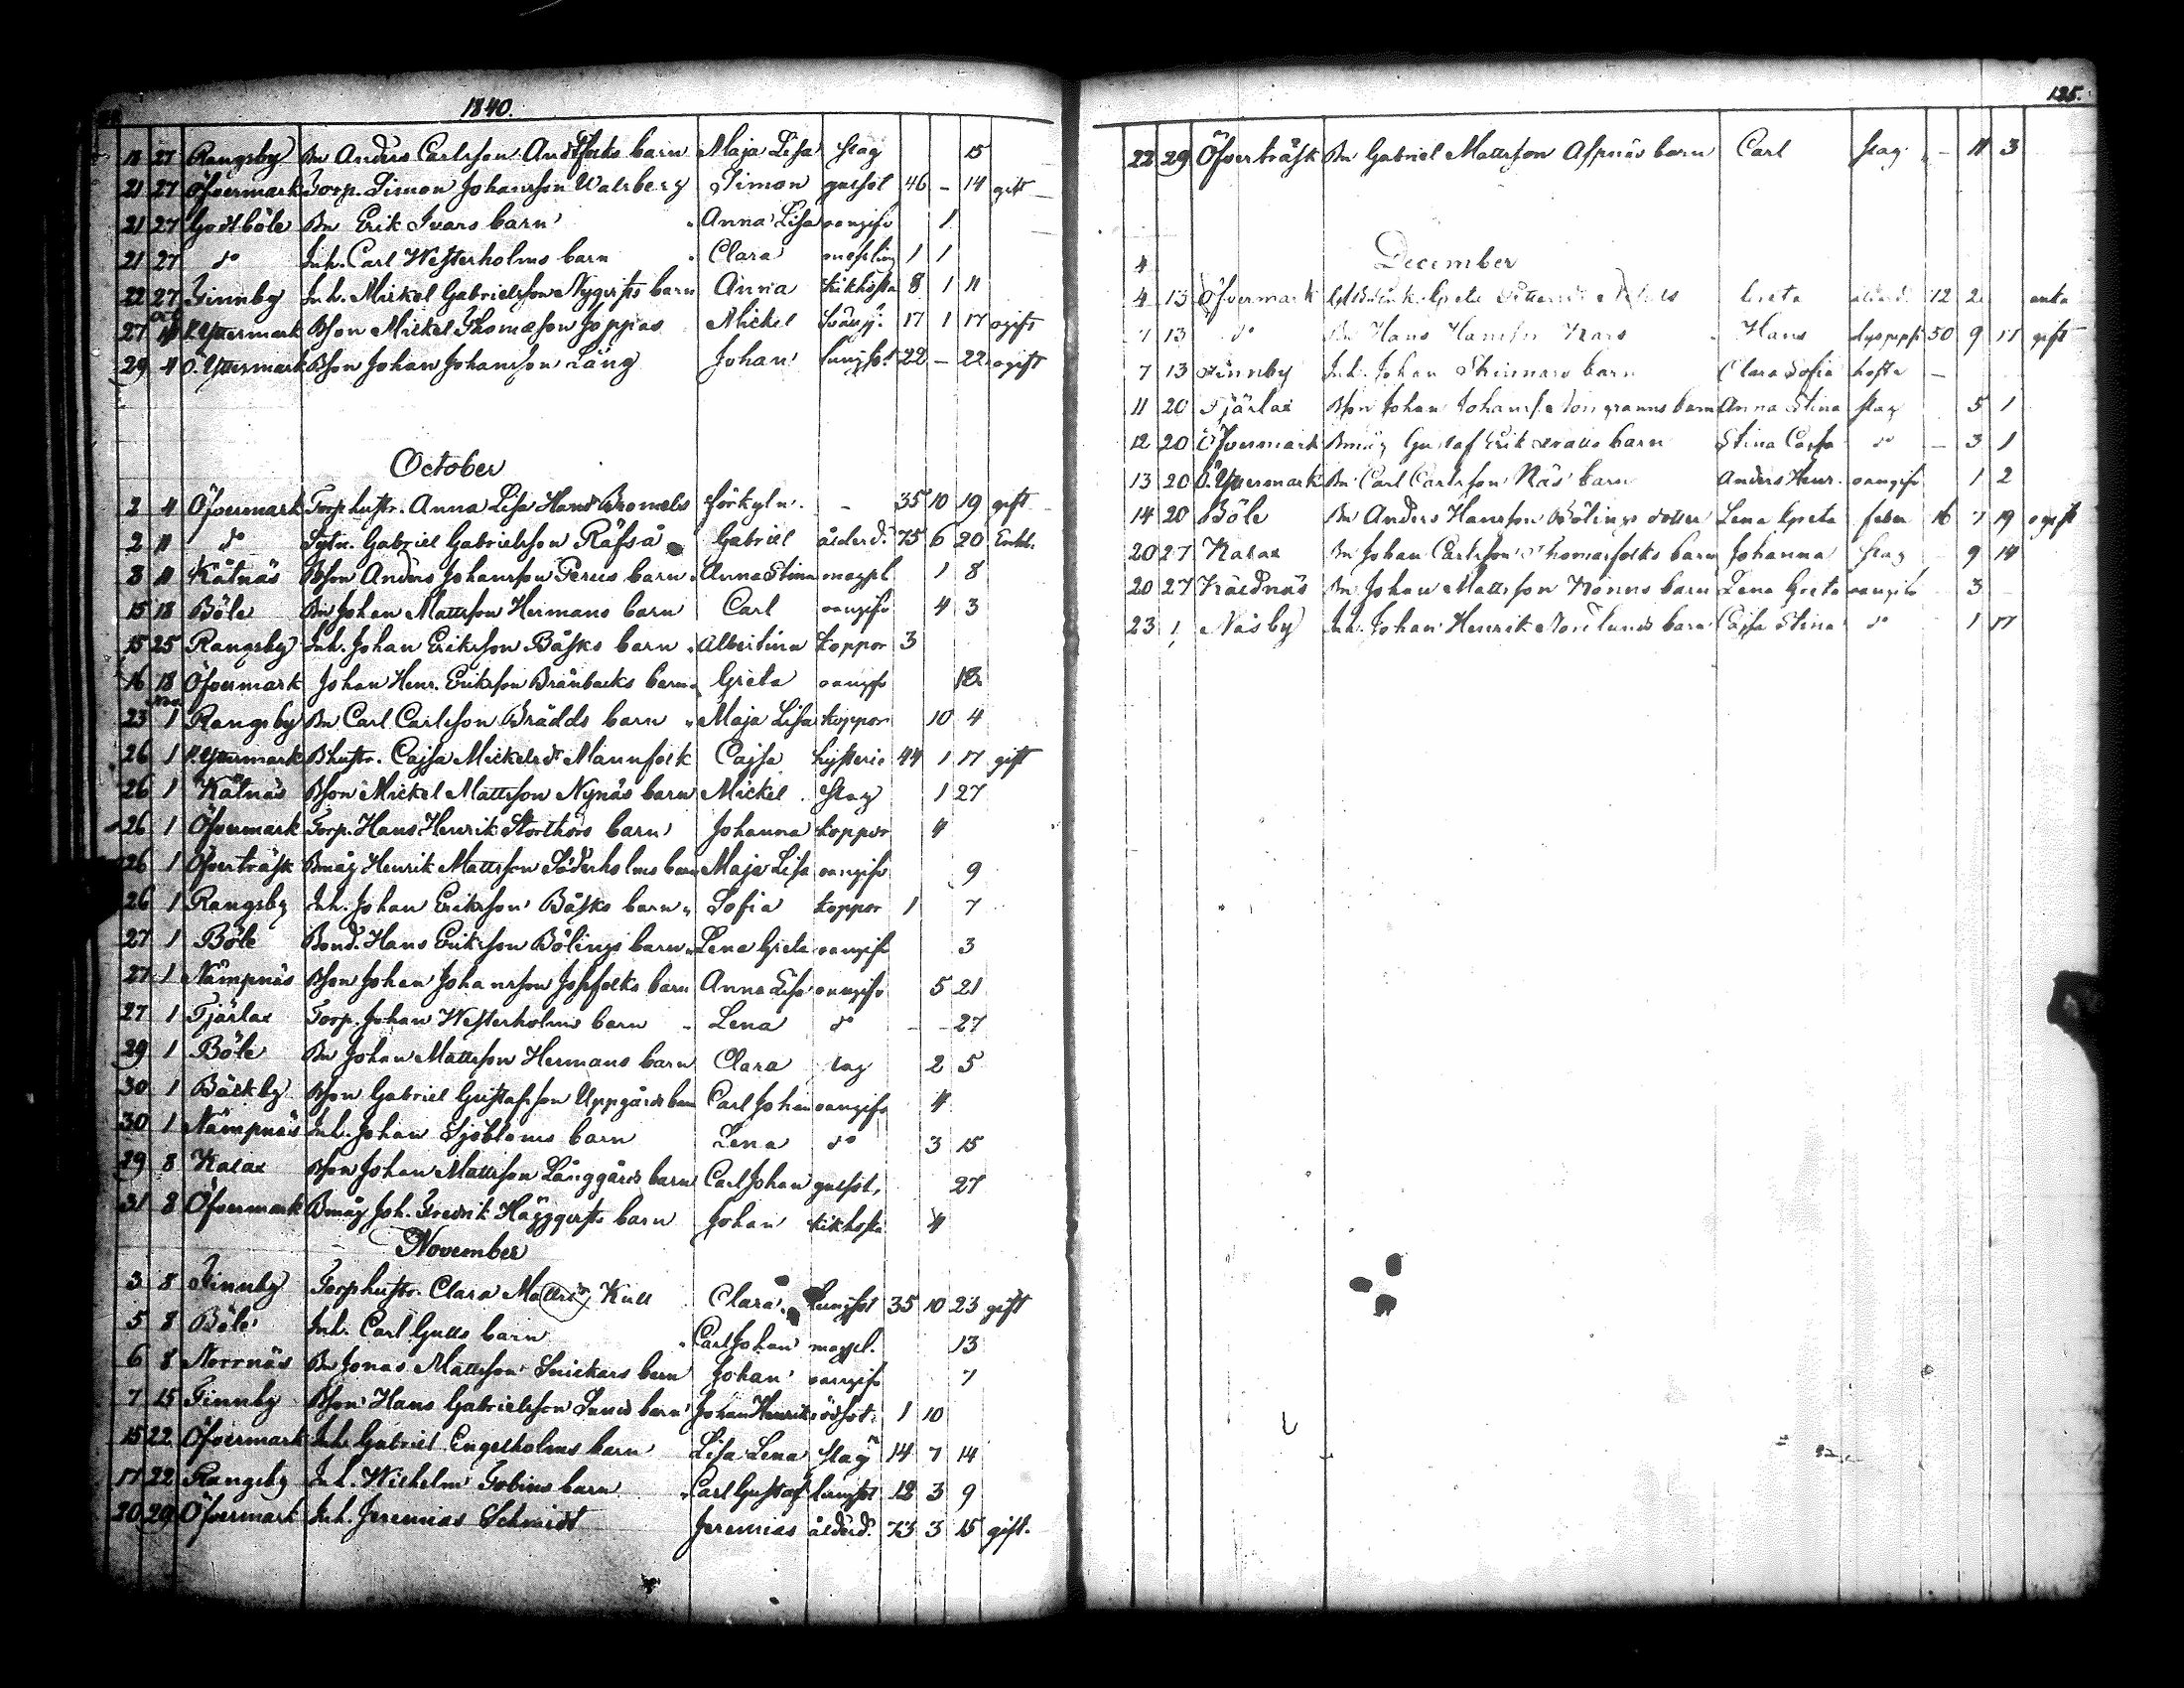 1840.
18 27 Rangsby Bn Anders Carlsson Andsfolks barn Maja Lisa slag 15
21 27 Öfvermark Torp. Simon Johansson Walsberg Simon gulsot 46 - 14 gift
21 27 Gottböle Bn Erik Ivars barn Anna Lisa oangifv 1
21 27 do Inh. Carl Westerholms barn Clara messling 1 1
22 27 Finnby Inh. Mickel Gabrielsson Nyqvists barn Anna kikhosta 8 1 11
27 Yttermark Bson Mickel Thomasson Joppas Mickel 17 1 17 ogift
29 4 Ö. Yttermark Bson Johan Johansson Lång Johan lungsot 22 - 22 ogift
October
2 4 Öfvermark Torphustr. Anna Lisa Hansdr Bromels förkyln. - 35 10 19 gift
2 11 do Sytn. Gabriel Gabrielsson Räfså Gabriel ålderd. 75 6 20 Enkl.
8 11 Kåtnäs Bson Anders Johansson Perus barn Anna Stina magpl 1 8
15 18 Böle Bn Johan Mattsson Hermans barn Carl oangifv 4 3
15 25 Rangsby Inh. Johan Eriksson Båsks barn Albertina koppor 3
16 18 Öfvermark Johan Henr. Eriksson Brånbacks barn Greta oangifv 13
Nov.
23 1 Rangsby Bn Carl Carlsson Brädds barn Maja Lisa koppor 10 4
26 1 Yttermark Bhustr. Cajsa Mickelsdr Mannfolk Cajsa hysterie 44 1 17 gift
26 1 Kåtnäs Bson Mickel Mattsson Nynäs barn Mickel slag 1 27
26 1 Öfvermark Torp. Hans Henrik Storthors barn Johanna koppor 4
26 1 Öfverträsk Bmåg Henrik Mattsson Söderholms barn Maja Lisa oangifv 9
26 1 Rangsby Inh. Johan Eriksson Båsks barn Sofia koppor 1 7
27 1 Böle Bond. Hans Eriksson Bölings barn Lena Greta oangifv 3
27 1 Nämpnäs Bson Johan Johansson barn Anna Lisa oangifv 5 21
27 1 Tjärlax Torp. Johan Westerholms barn Lena do - - 27
29 1 Böle Bn Johan Mattsson Hermans barn Clara slag 2 5
30 1 Bäckby Bson Gabriel Gustafsson Uppgårds barn Carl Johan oangifv 4
30 1 Nämpnäs Inh. Johan Sjöbloms barn Lena do 3 15
29 8 Kalax Bson Johan Mattsson Långgårds barn Carl Johan gulsot, 27
31 8 Öfvermark Bmåg Joh. Fredrik Häggqvists barn Johan kikhosta 4
November
3 8 Finnby Torphustr. Clara Mattsdr Kull Clara lungsot 35 10 23 gift
5 8 Böle Inh. Carl Gulls barn Carl Johan magpl. 13
6 8 Norrnäs Bn Jonas Mattsson Snickars barn Johan oangifv 7
7 15 Finnby Bson Hans Gabrielsson Lunds barn Johan Henrik rödsot 1 10
15 22 Öfvermark Inh. Gabriel Engelholms barn Lisa Lena slag 14 7 14
17 22 Rangsby Inh. Wilhelm Tobins barn Carl Gustaf lungsot 12 3 9
20 29 Öfvermark Inh. Jeremias Schmidt Jeremias ålderd. 73 3 15 gift.
125.
22 29 Öfverträsk Bn Gabriel Mattsson Aspnäs barn Carl slag - 11 3
December
4
4 13 Öfvermark Greta Greta ålderd. 72 2 enka
7 13 do Bn Hans Hansson Kars Hans dyspeps 50 9 17 gift
7 13 Finnby Inh. Johan Skinnars barn Clara Sofia hosta -
11 20 Tjärlax Bson Johan Johanss. barn Anna Stina slag 5 1
12 20 Öfvermark Bmåg Gustaf Erik barn Stina Cajsa do - 3 1
13 20 Ö. Yttermark Bn Carl Carlsson Näs barn Anders Henr. oangifv 1 2
14 20 Böle Bn Anders Hansson Bölings dotter Lena Greta feber 16 7 19 ogift
20 27 Kalax Bn Johan Carlsson Thomasfolks barn Johanna slag 9 14
20 27 Kåldnäs Bn Johan Mattsson Rönns barn Lena Greta oangifv 3
23 1 Näsby Inh. Johan Henrik Norrlunds barn Cajsa Stina do 1 17